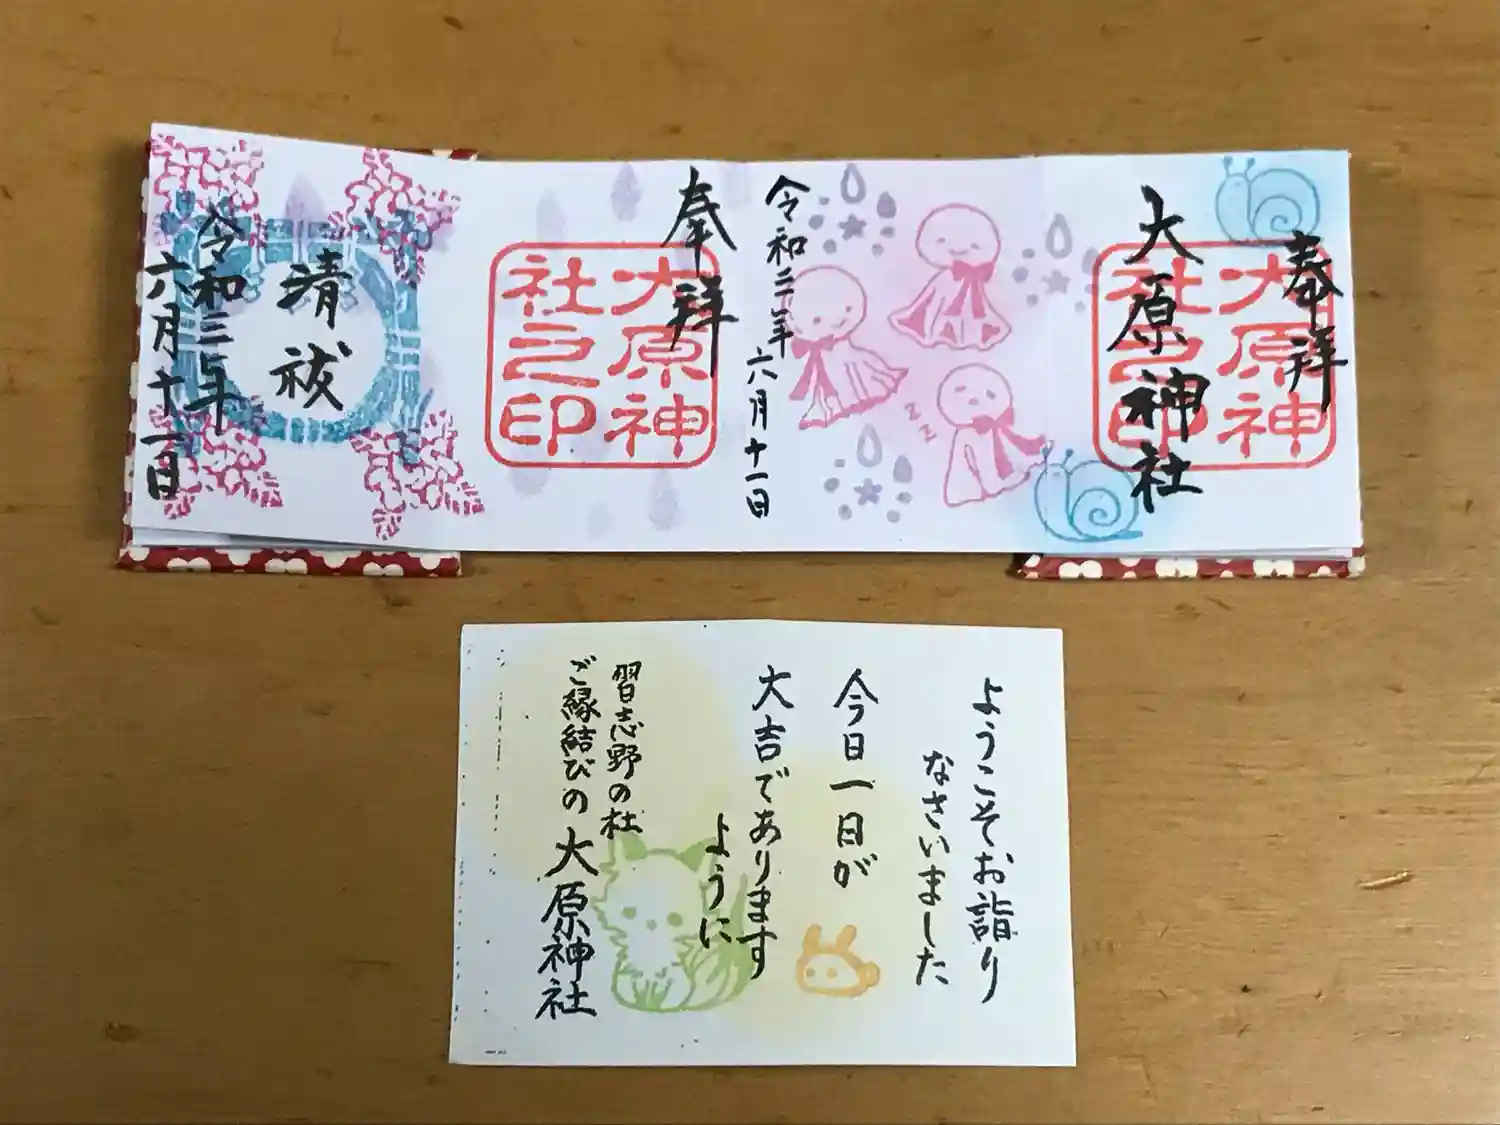 奉拝
大原神社
大原神
社之印
令和三年
六月十一日
奉拝
大原神
社之印
清祓
令和三年
六月十一日
ようこそお詣り
なさいました
今日一日が
大吉であります
ように
習志野の杜
ご縁結びの 大原神社